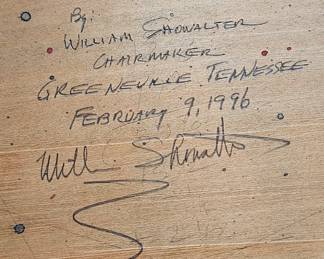 By:
WILLIAM SHOWALTER
CHAIRMAKER
GREENEVILLE TENNESSEE
FEBRUARY 9, 1996
Will Showalter